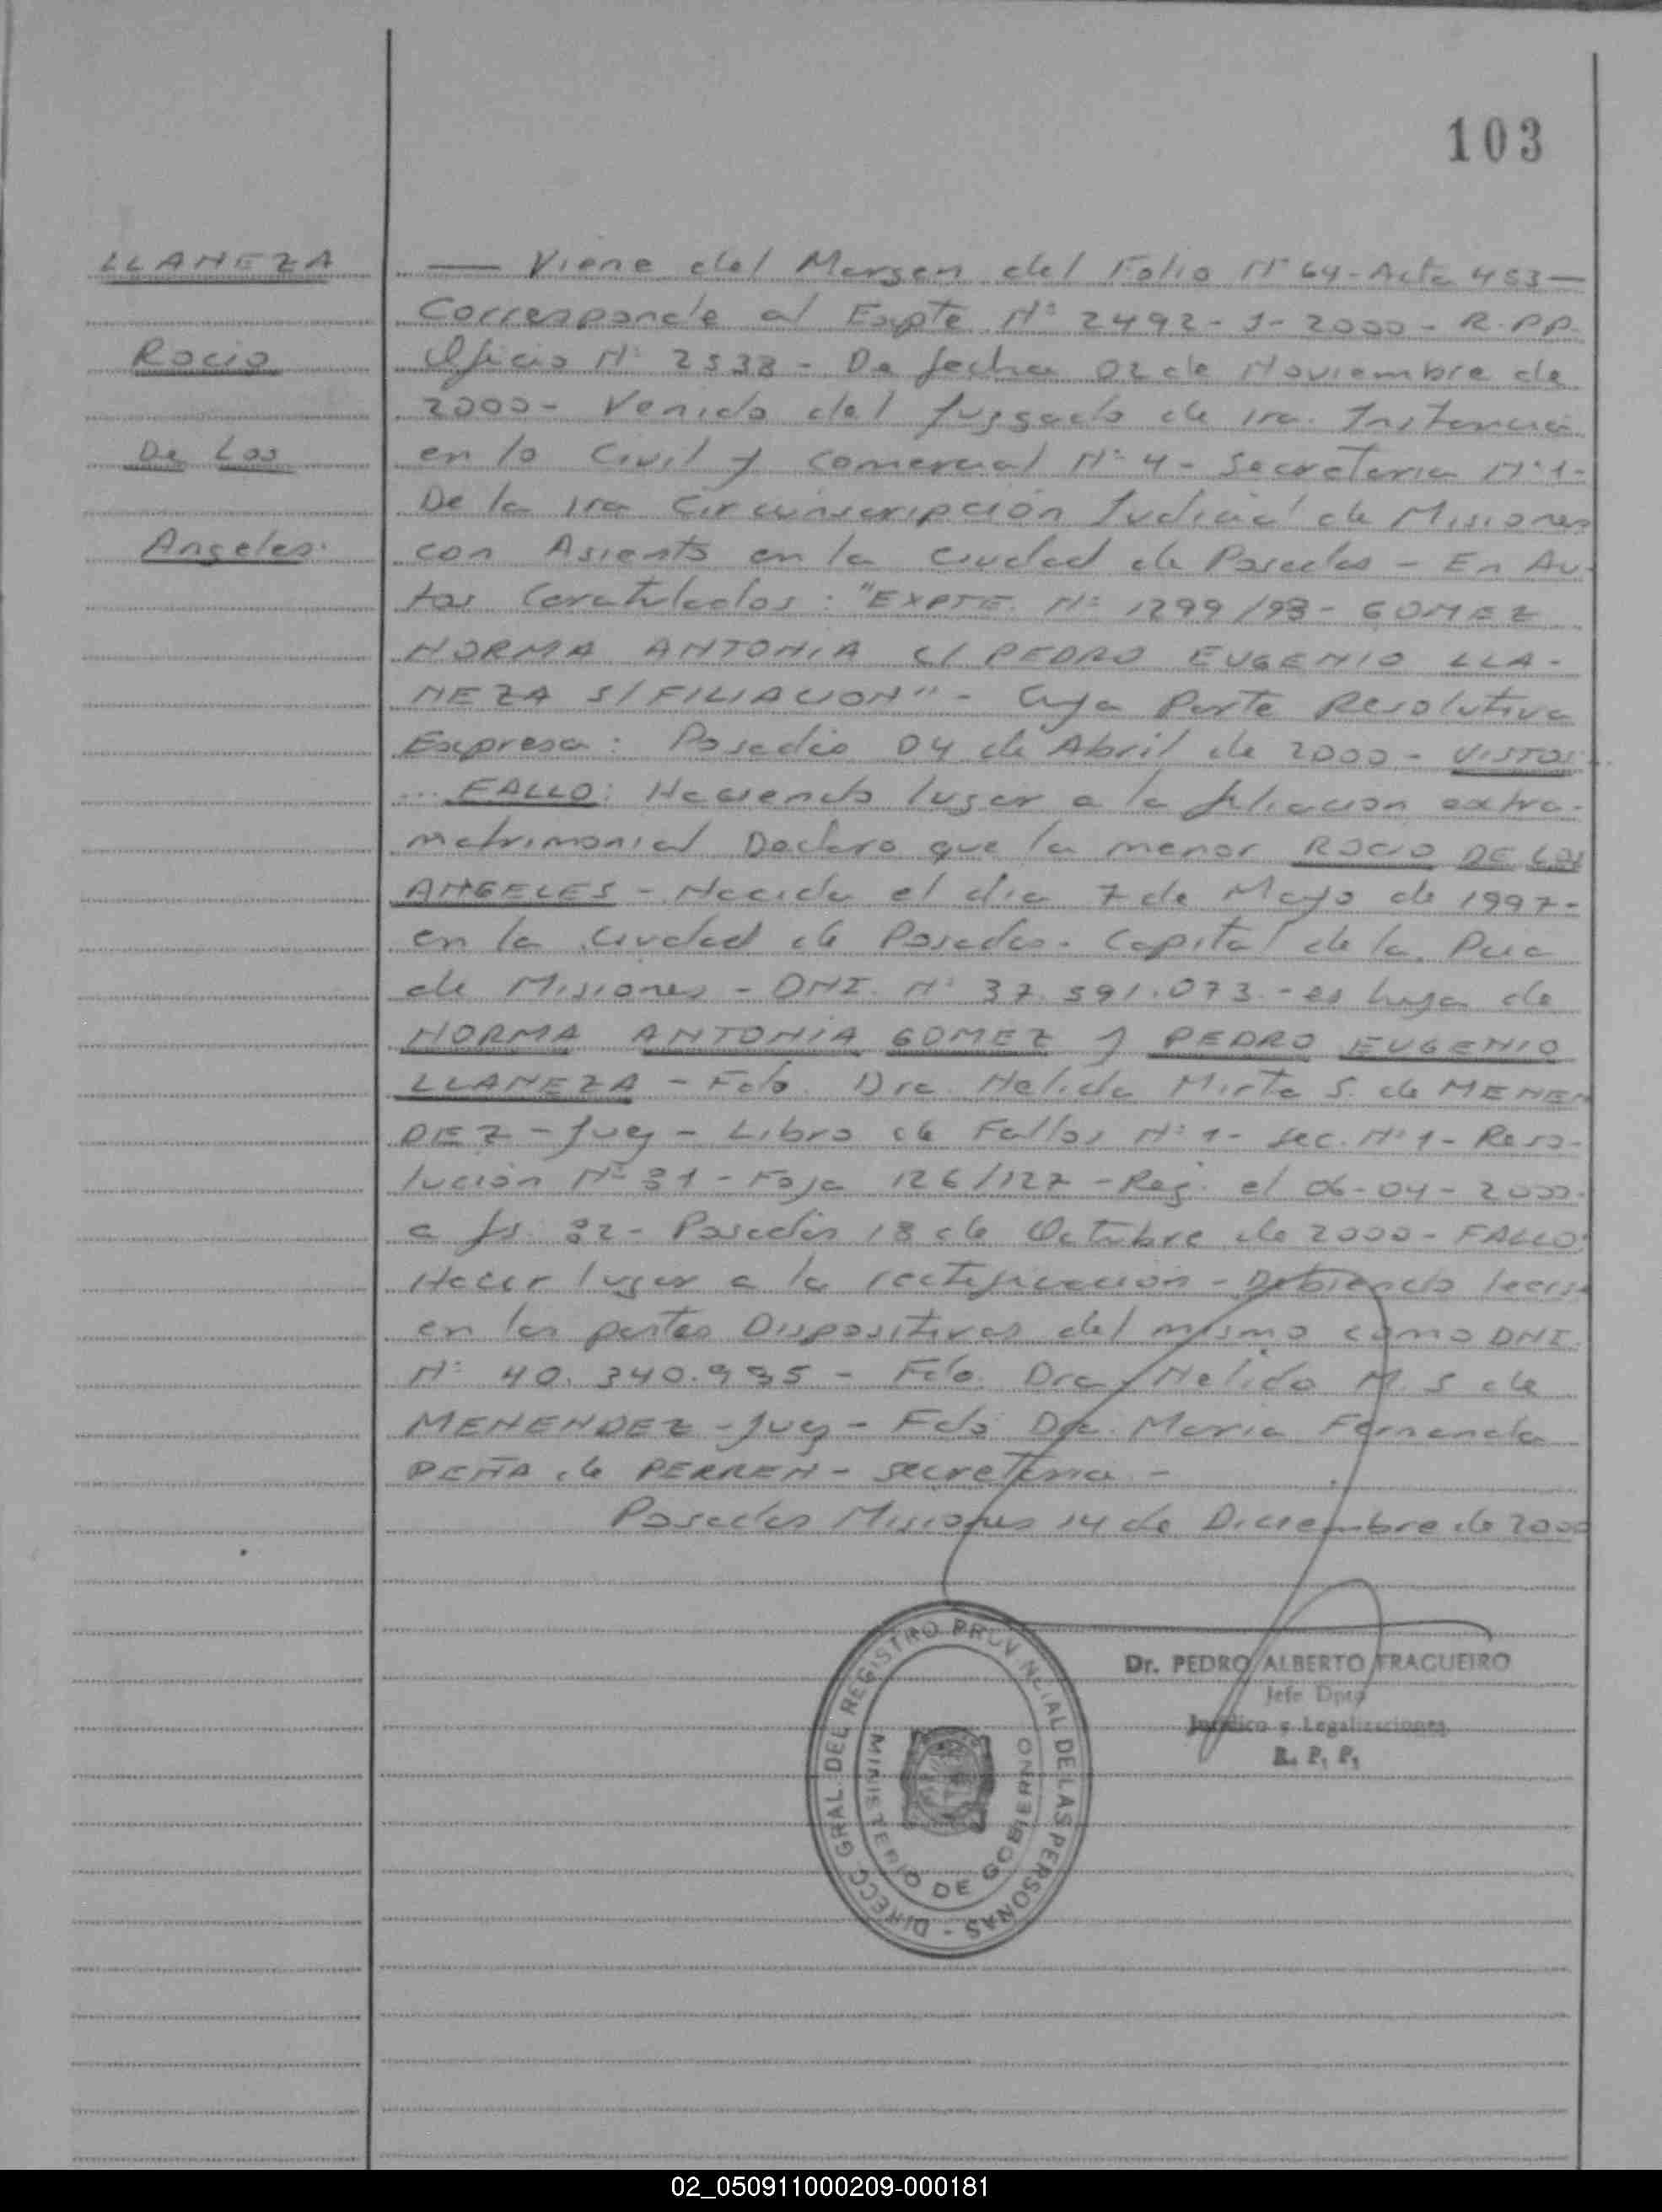 103
LLANEZA
Rocio
De Los
Angeles.
— Viene del Margen del Folio Nº 64 - Acta 453 —
Corresponde al Expte Nº 2492 - J - 2000 - R.P.P.
Oficio Nº 2538 - De fecha 02 de Noviembre de
2000 - Venido del Juzgado de 1ra. Instancia
en lo Civil y Comercial Nº 4 - Secretaria Nº 1 -
De la 1ra Circunscripción Judicial de Misiones
con Asiento en la Ciudad de Posadas - En Au-
tos Caratulados: "EXPTE. Nº 1299/98 - GOMEZ
NORMA ANTONIA C/ PEDRO EUGENIO LLA-
NEZA S/ FILIACION" - Cuya Parte Resolutiva
Expresa: Posadas 04 de Abril de 2000 - VISTOS:
... FALLO: Haciendo lugar a la filiacion extra-
matrimonial Declaro que la menor ROCIO DE LOS
ANGELES - Nacida el dia 7 de Mayo de 1997 -
en la Ciudad de Posadas - Capital de la Pcia
de Misiones - DNI. Nº 37.591.073 - es hija de
NORMA ANTONIA GOMEZ y PEDRO EUGENIO
LLANEZA - Fdo. Dra. Nelida Mirta S. de MENEN
DEZ - Juez - Libro de Fallos Nº 1 - Sec. Nº 1 - Reso-
lución Nº 31 - Foja 126/127 - Reg. el 06-04-2000-
a fs. 32 - Posadas 18 de Octubre de 2000 - FALLO:
Hacer lugar a la rectificacion - Debiendo leerse
en las partes Dispositivas del mismo como DNI.
Nº 40.340.995 - Fdo. Dra. Nelida M. S de
MENENDEZ - Juez - Fdo Dra. Maria Fernanda
PEÑA de PERREN - Secretaria -
Posadas Misiones 14 de Diciembre de 2000
DIRECC GRAL. DEL REGISTRO PROVINCIAL DE LAS PERSONAS -
MINISTERIO DE GOBIERNO
Dr. PEDRO ALBERTO FRAGUEIRO
Jefe Dpto
Jurídico y Legalizaciones
R. P. P.
02_050911000209-000181